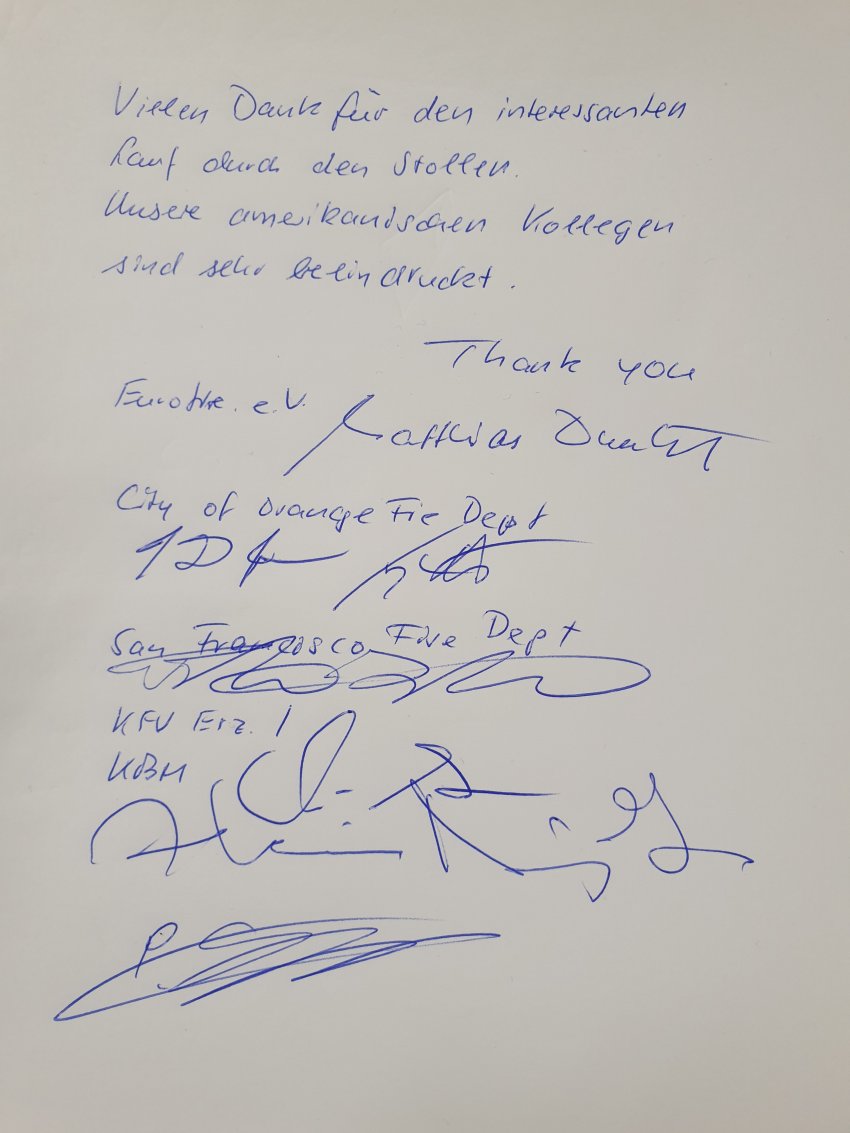 Vielen Dank für den interessanten
Lauf durch den Stollen.
Unsere amerikanischen Kollegen
sind sehr beeindruckt.
Thank you
e.V. Matthias
City of Orange Fie Dept
San Francisco Fire Dept
KFV Erz. /
KBM